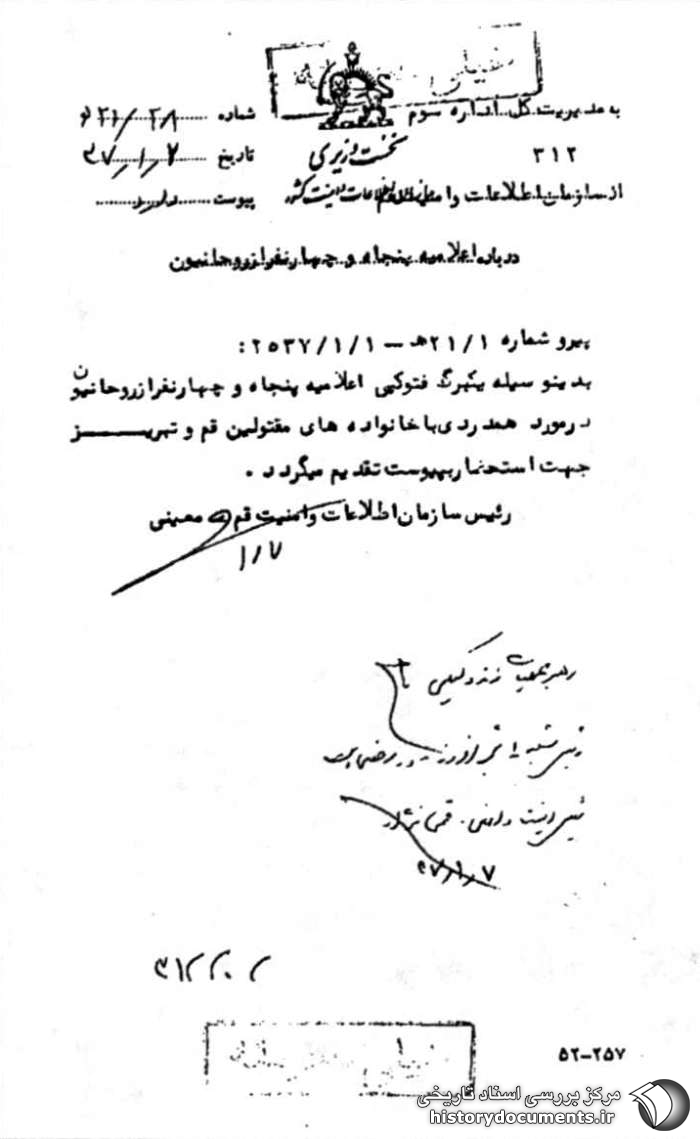 خیلی محرمانه
به مدیریت کل اداره سوم
شماره ۲۱/۲۸ ه‍
۳۱۲
نخست وزیری
تاریخ ۳۷/۱/۷
از سازمان اطلاعات و امنیت قم
سازمان اطلاعات و امنیت کشور
پیوست دارد
درباره اعلامیه پنجاه و چهار نفر از روحانیون
پیرو شماره ۲۱/۱ه‍ – ۲۵۳۷/۱/۱ :
بدینوسیله یکبرگ فتوکپی اعلامیه پنجاه و چهار نفر از روحانیون
در مورد همدردی با خانواده های مقتولین قم و تبریز
جهت استحضار بپیوست تقدیم میگردد .
رئیس سازمان اطلاعات و امنیت قم معینی
۱/۷
رهبر عملیات
رئیس
رئیس امنیت داخلی
۳۷/۱/۷
خیلی محرمانه
۵۲-۲۵۷
مرکز بررسی اسناد تاریخی
historydocuments.ir